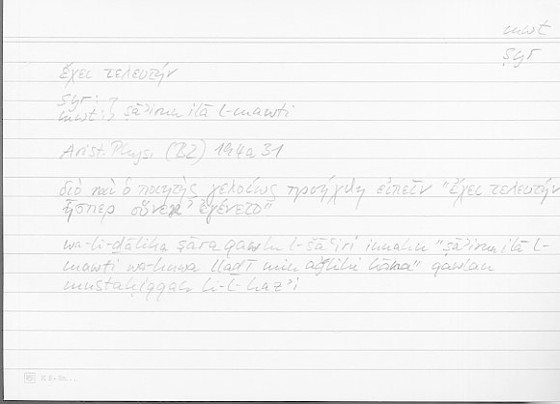 mwt
ṣyr
ἔχει τελευτήν
ṣyr: 7
mwt: 5 ṣāʾirun ilā l-mawti
Arist. Phys. (B2) 194a31
διὸ καὶ ὁ ποιητὴς γελοίως προήχθη εἰπεῖν "ἔχει τελευτὴν
ἧσπερ οὕνεκ' ἐγένετο"
wa-li-ḏālika ṣāra qawlu l-šāʿiri innahu "ṣāʾirun ilā l-
mawti wa-huwa llaḏī min aǧlihi kāna" qawlan
mustaḥiqqan li-l-hazʾi